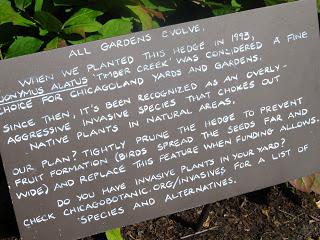 ALL GARDENS EVOLVE.
WHEN WE PLANTED THIS HEDGE IN 1993,
EUONYMUS ALATUS 'TIMBER CREEK' WAS CONSIDERED A FINE
CHOICE FOR CHICAGOLAND YARDS AND GARDENS.
SINCE THEN, IT'S BEEN RECOGNIZED AS AN OVERLY-
AGGRESSIVE INVASIVE SPECIES THAT CHOKES OUT
NATIVE PLANTS IN NATURAL AREAS.
OUR PLAN? TIGHTLY PRUNE THE HEDGE TO PREVENT
FRUIT FORMATION (BIRDS SPREAD THE SEEDS FAR AND
WIDE) AND REPLACE THIS FEATURE WHEN FUNDING ALLOWS.
DO YOU HAVE INVASIVE PLANTS IN YOUR YARD?
CHECK CHICAGOBOTANIC.ORG/INVASIVES FOR A LIST OF
SPECIES AND ALTERNATIVES.